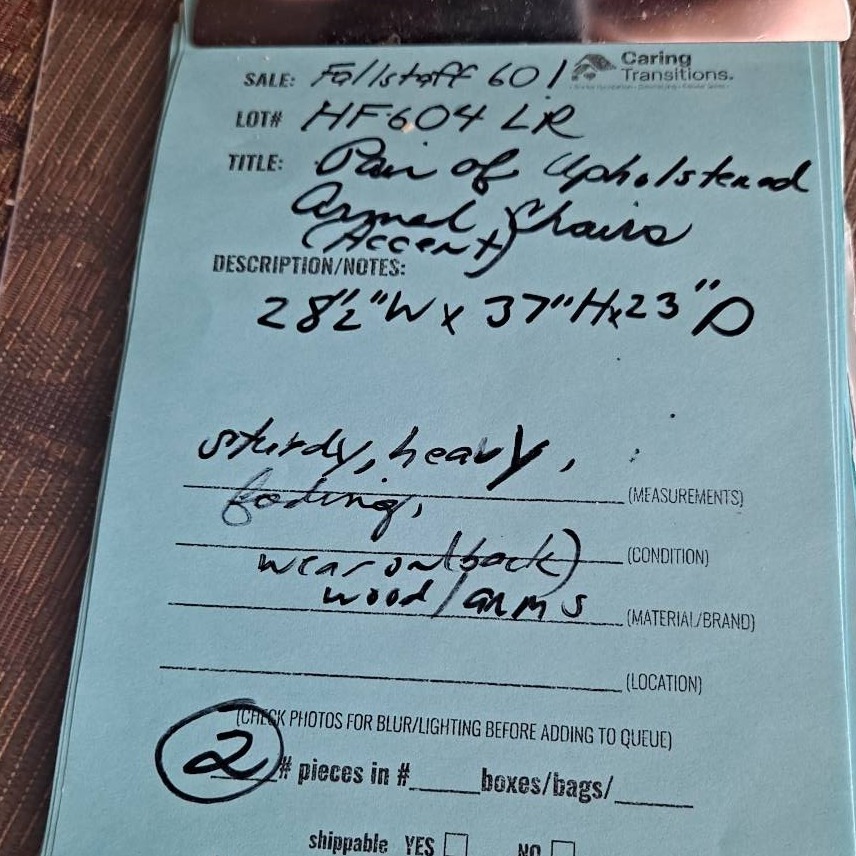 Caring
SALE: Fallstaff 601 Transitions.
LOT# HF604 LR
TITLE: Pair of Upholstered
Armed Chairs
(Accent)
DESCRIPTION/NOTES:
28½"W x 37"H x 23"D
sturdy, heavy,
(MEASUREMENTS)
fading,
(CONDITION)
wear on (back)
wood/arms
(MATERIAL/BRAND)
(LOCATION)
(CHECK PHOTOS FOR BLUR/LIGHTING BEFORE ADDING TO QUEUE)
2 # pieces in #______ boxes/bags/______
shippable YES NO